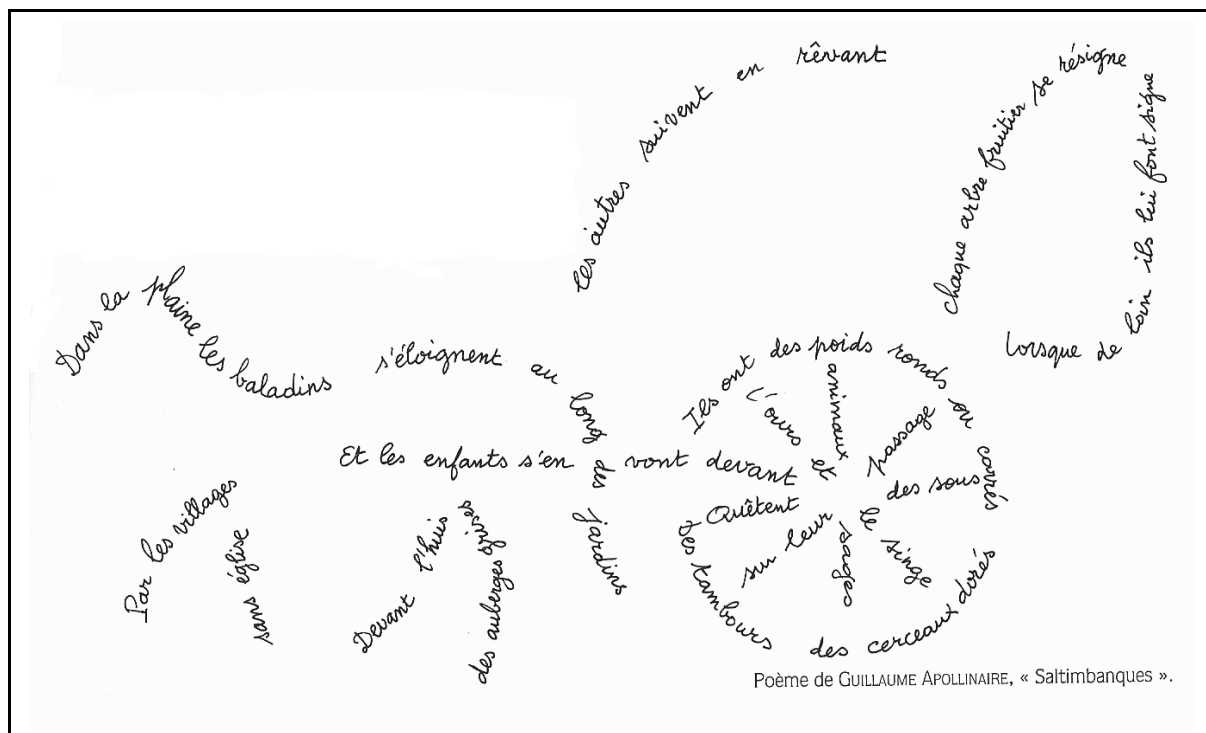 Dans la plaine les baladins
s'éloignent au long des jardins
Devant l'huis des auberges grises
Par les villages sans église
Et les enfants s'en vont devant
les autres suivent en rêvant
chaque arbre fruitier se résigne
lorsque de loin ils lui font signe
Ils ont des poids ronds ou carrés
Des tambours des cerceaux dorés
l'ours et le singe
animaux sages
Quêtent des sous
sur leur passage
Poème de GUILLAUME APOLLINAIRE, « Saltimbanques ».